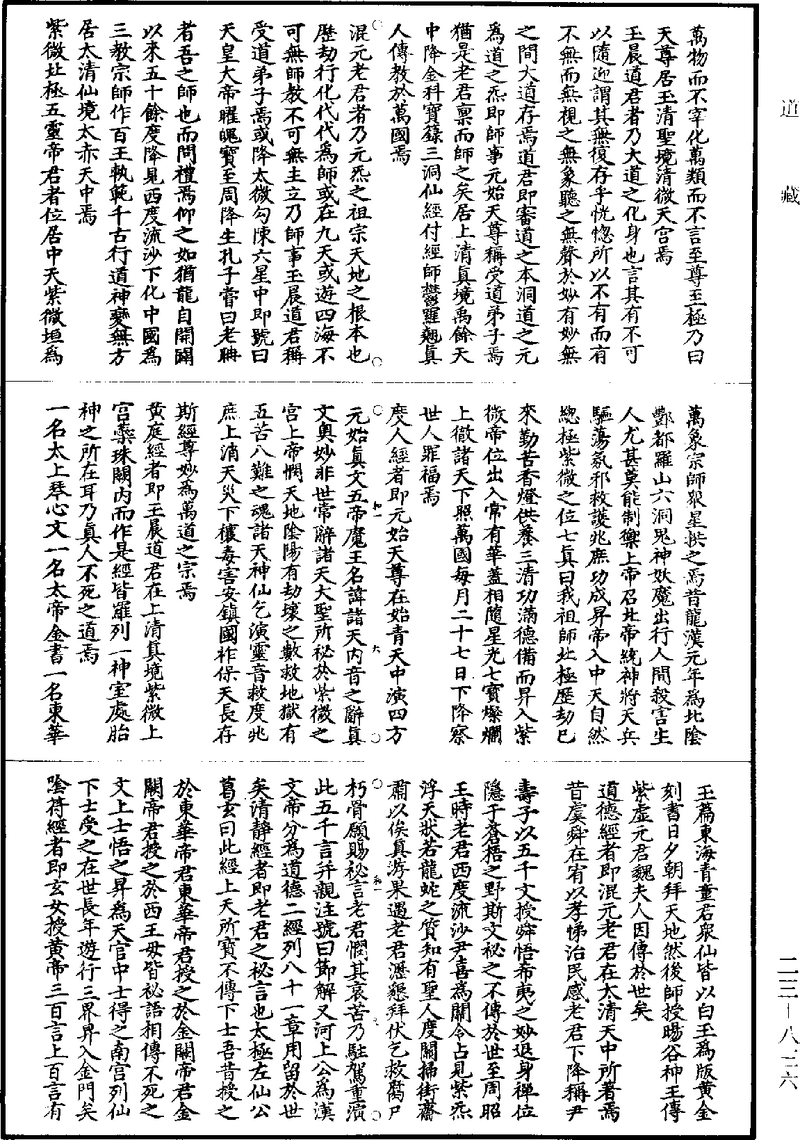 道藏
萬物而不宰化萬類而不言至尊至極乃曰
天尊居玉清聖境清微天宮焉
玉晨道君者乃大道之化身也言其有不可
以隨迎謂其無復存乎恍惚所以不有而有
不無而無視之無象聽之無聲於妙有妙無
之間大道存焉道君即審道之本洞道之元
為道之炁即師事元始天尊稱受道弟子焉
猶是老君禀而師之矣居上清真境禹餘天
中降金科寶籙三洞仙經付經師鬱羅翹真
人傳教於萬國焉
混元老君者乃元炁之祖宗天地之根本也
歷劫行化代代為師或在九天或遊四海不
可無師教不可無主立乃師事玉晨道君稱
受道弟子焉或降太微勾陳六星中即號曰
天皇大帝曜魄寶至周降生孔子嘗曰老聃
者吾之師也而問禮焉仰之如猶龍自開闢
以來五十餘度降見西度流沙下化中國為
三教宗師作百王執範千古行道神變無方
居太清仙境太赤天中焉
紫微北極五靈帝君者位居中天紫微垣為
萬象宗師眾星拱之焉昔龍漢元年為北陰
酆都羅山六洞鬼神妖魔出行人間殺害生
人尤甚莫能制禦上帝召北帝統神將天兵
驅蕩氛邪救護兆庶功成昇帝入中天自然
總極紫微之位七真曰我祖師北極歷劫已
來勤苦香燈供養三清功滿德備而昇入紫
微帝位出入常有華蓋相隨星光七寶燦爛
上徹諸天下照萬國每月二十七日下降察
世人罪福焉
度人經者即元始天尊在始青天中演四方
元始真文五帝魔王名諱諸天內音之辭真
文奧妙非世常辭諸天大聖所祕於紫微之
宮上帝憫天地陰陽有劫壞之數救地獄有
五苦八難之魂諸天神仙乞演靈音救度兆
庶上消天災下禳毒害安鎮國祚保天長存
斯經尊妙為萬道之宗焉
黃庭經者即玉晨道君在上清真境紫微上
宮蘂珠闕內而作是經皆羅列一神室處胎
神之所在耳乃真人不死之道焉
一名太上琴心文一名太帝金書一名東華
玉篇東海青童君眾仙皆以白玉為版黃金
刻書日夕朝拜天地然後師授暘谷神王傳
紫虛元君魏夫人因傳於世矣
道德經者即混元老君在太清天中所著焉
昔虞舜在宥以孝悌治民感老君下降稱尹
壽子以五千文授舜悟希夷之妙退身禪位
隱于蒼梧之野斯文祕之不傳於世至周昭
王時老君西度流沙尹喜為關令占見紫炁
浮天狀若龍蛇之質知有聖人度關掃街齋
肅以俟真游果遇老君瀝懇拜伏乞救騫尸
朽骨願賜祕言老君憫其哀苦乃駐駕重演
此五千言并親注號曰節解又河上公為漢
文帝分為道德二經列八十一章用留於世
矣清靜經者即老君之祕言也太極左仙公
葛玄曰此經上天所寶不傳下士吾昔授之
於東華帝君東華帝君授之於金闕帝君金
闕帝君授之於西王母皆祕語相傳不死之
文上士悟之昇為天官中士得之南宮列仙
下士受之在世長年遊行三界昇入金門矣
陰符經者即玄女授黃帝三百言上百言有
二三－八二六